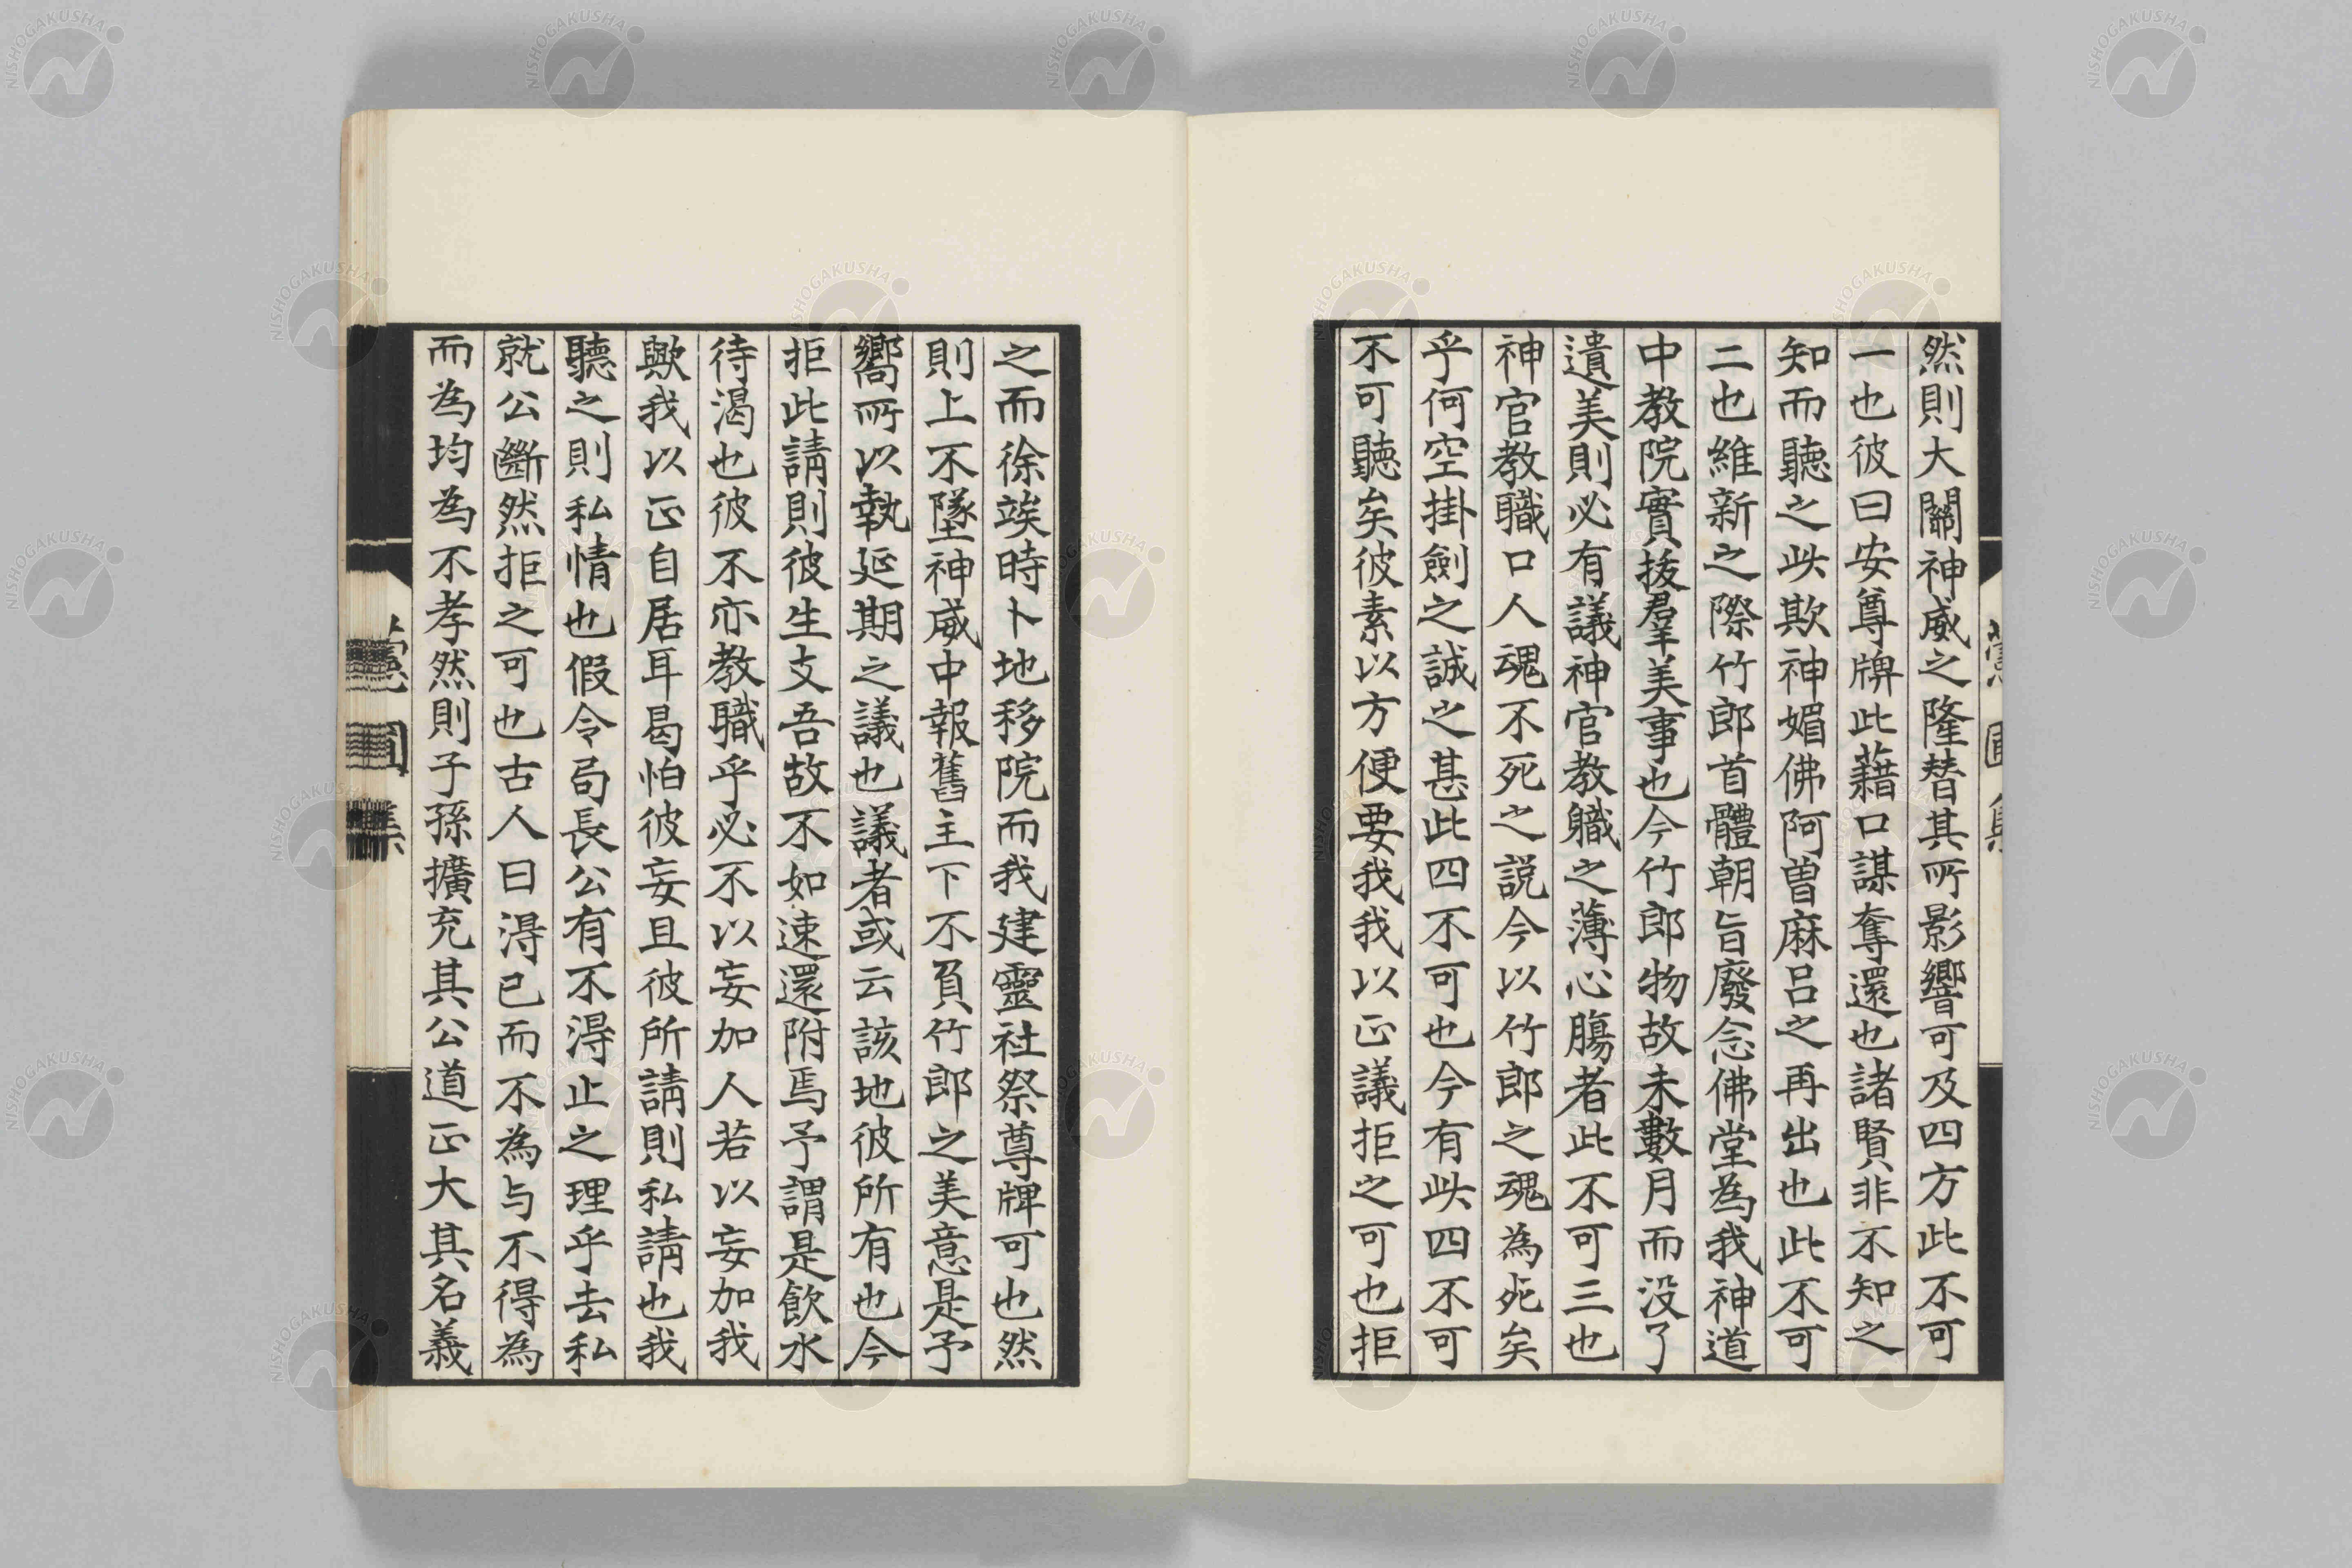 然則大關神威之隆替其所影響可及四方此不可
一也彼曰安尊牌此藉口謀奪還也諸賢非不知之
知而聽之此欺神媚佛阿曽麻呂之再出也此不可
二也維新之際竹郎首體朝旨廢念佛堂為我神道
中教院實拔羣美事也今竹郎物故未數月而没了
遺美則必有議神官教職之薄心膓者此不可三也
神官教職口人魂不死之説今以竹郎之魂為死矣
乎何空掛劍之誠之甚此四不可也今有此四不可
不可聽矣彼素以方便要我我以正議拒之可也拒
之而徐竢時卜地移院而我建靈社祭尊牌可也然
則上不墜神威中報舊主下不負竹郎之美意是予
嚮所以執延期之議也議者或云該地彼所有也今
拒此請則彼生支吾故不如速還附焉予謂是飲水
待渴也彼不亦教職乎必不以妄加人若以妄加我
歟我以正自居耳曷怕彼妄且彼所請則私請也我
聽之則私情也假令局長公有不得止之理乎去私
就公斷然拒之可也古人曰得已而不為与不得為
而為均為不孝然則子孫擴充其公道正大其名義
NISHOGAKUSHA